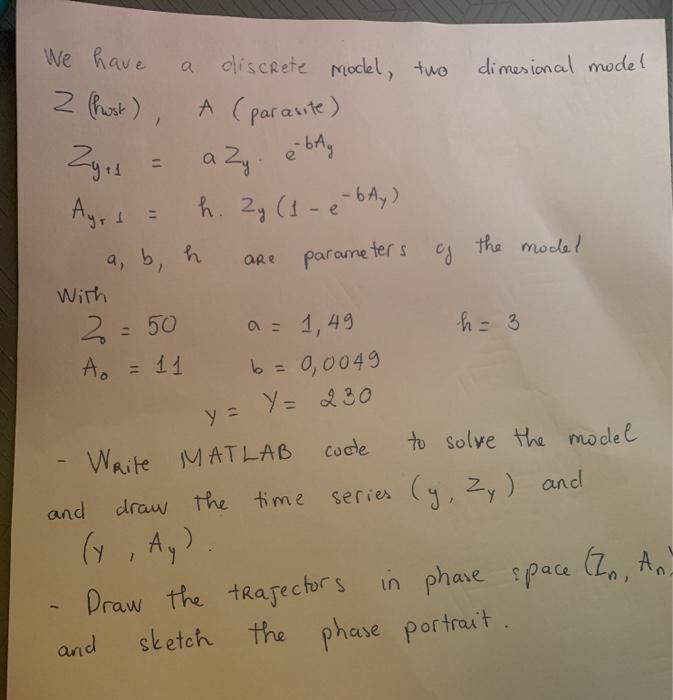 We have a discrete model, two dimesional model
Z (host), A (parasite)
Zy+1 = a Zy . e^-bAy
Ay+1 = h. Zy (1 - e^-bAy)
a, b, h are parameters of the model
With
Z0 = 50 a = 1,49 h = 3
A0 = 11 b = 0,0049
y = Y = 230
- Write MATLAB code to solve the model
and draw the time series (y, Zy) and
(y, Ay).
- Draw the trajectors in phase space (Zn, An)
and sketch the phase portrait.